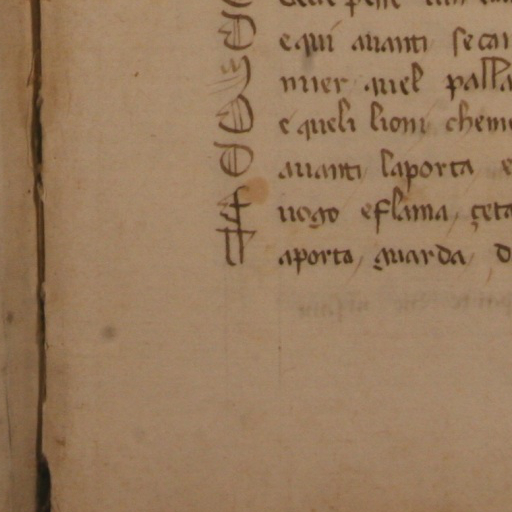 equi auanti se cau
mier quel palla
e queli lioni cheme
auanti laporta e
uogo eflama çeta
aporta guarda d